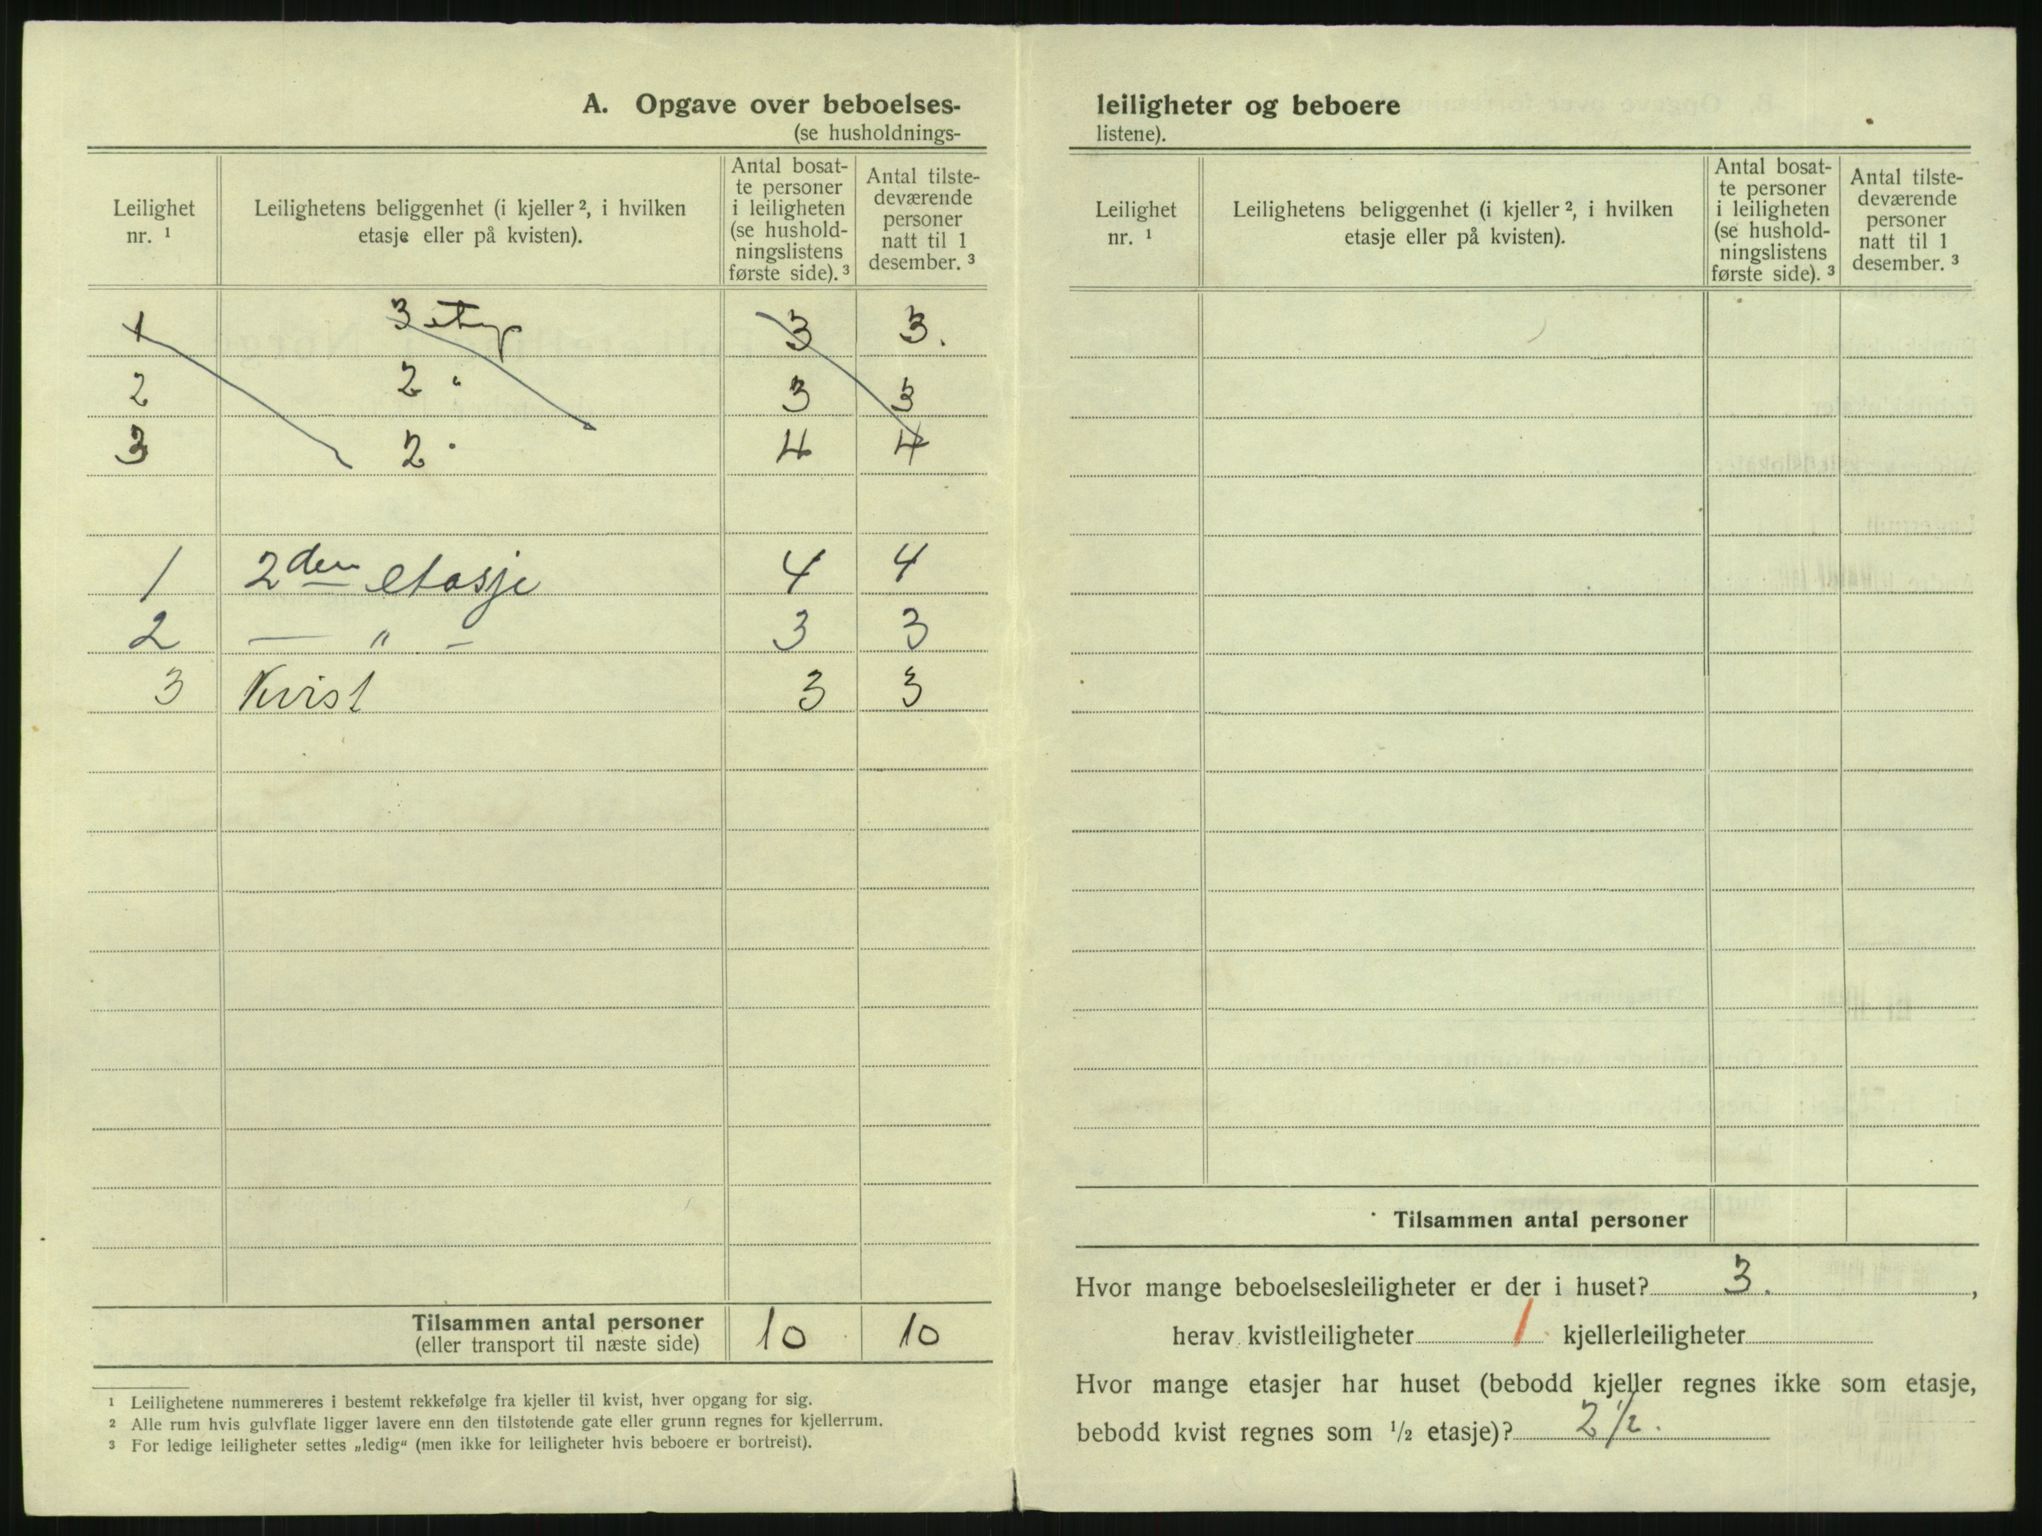 A. Opgave over beboelses-
(se husholdnings-
Leilighet
nr. 1
Leilighetens beliggenhet (i kjeller 2, i hvilken
etasje eller på kvisten).
Antal bosat-
te personer
i leiligheten
(se hushold-
ningslistens
første side). 3
Antal tilste-
deværende
personer
natt til 1
desember. 3
1 3 3 3.
2 2 " 3 3
3 2 " 4 4
1 2den etasje 4 4
2 — " - 3 3
3 Kvist 3 3
Tilsammen antal personer 10 10
(eller transport til næste side)
1 Leilighetene nummereres i bestemt rekkefølge fra kjeller til kvist, hver opgang for sig.
2 Alle rum hvis gulvflate ligger lavere enn den tilstøtende gate eller grunn regnes for kjellerrum.
3 For ledige leiligheter settes „ledig“ (men ikke for leiligheter hvis beboere er bortreist).
leiligheter og beboere
listene).
Leilighet
nr. 1
Leilighetens beliggenhet (i kjeller 2, i hvilken
etasje eller på kvisten).
Antal bosat-
te personer
i leiligheten
(se hushold-
ningslistens
første side). 3
Antal tilste-
deværende
personer
natt til 1
desember. 3
Tilsammen antal personer
Hvor mange beboelsesleiligheter er der i huset? 3. ,
herav kvistleiligheter 1 kjellerleiligheter
Hvor mange etasjer har huset (bebodd kjeller regnes ikke som etasje,
bebodd kvist regnes som 1/2 etasje)? 2 1/2.